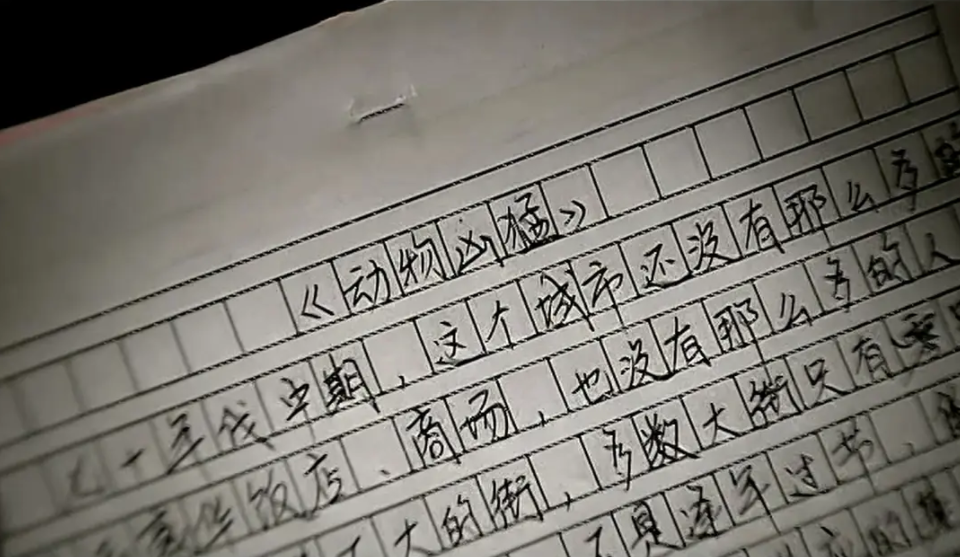 《动物凶猛》
七十年代中期，这个城市还没有那么多的
豪华饭店、商场，也没有那么多的人
大的街，多数大街只有零
不是逢年过节，